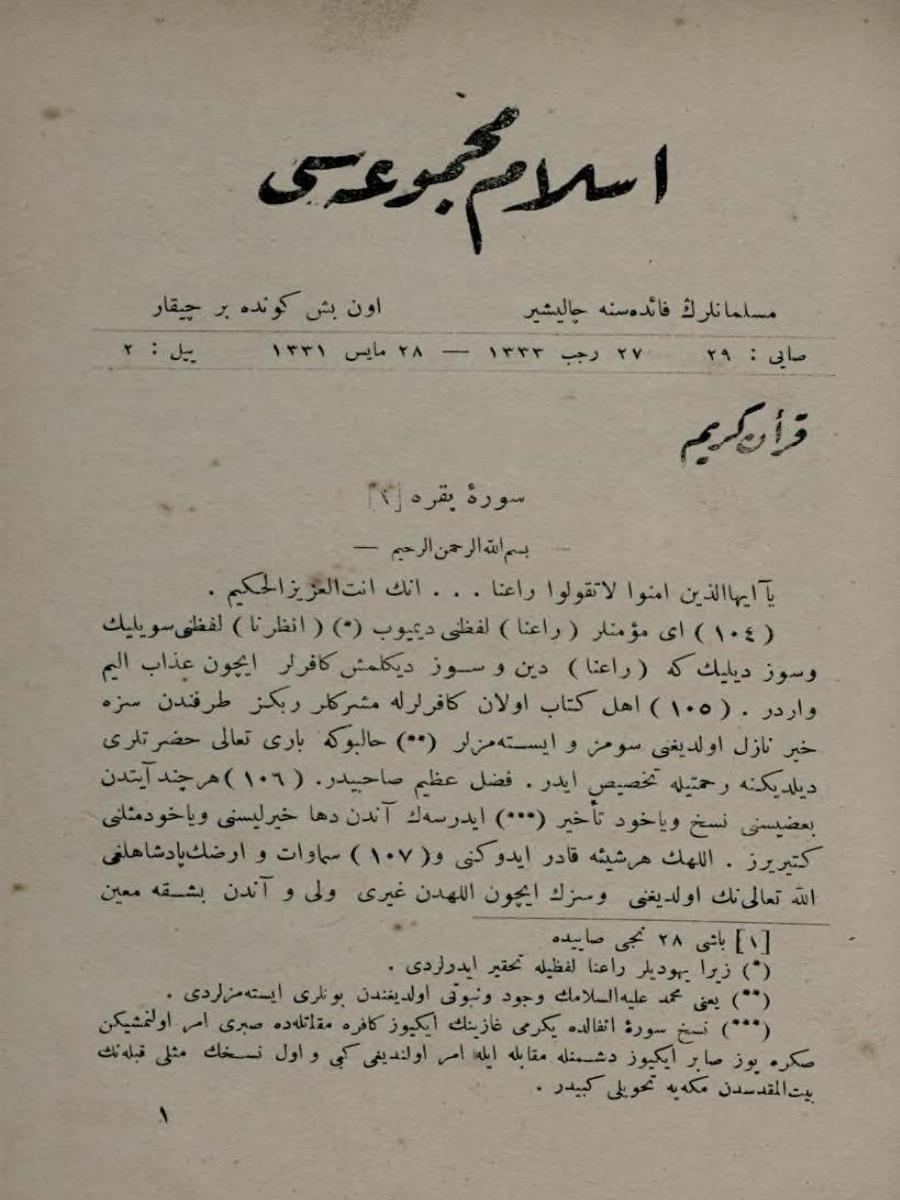 اسلام مجموعه‌سی
مسلمانلرڭ فائده‌سنه چالیشیر
اون بش كونده بر چیقار
صایی : ٢٩ ٢٧ رجب ١٣٣٣ — ٢٨ مایس ١٣٣١ ییل : ٢
قرأن كریم
سورهٔ یقره [٢]
— بسم‌الله‌الرحمن‌الرحیم —
یآ ایهاالذین امنوا لاتقولوا راعنا . . . انك انت‌العزیزالحكیم .
( ١٠٤ ) ای مؤمنلر ( راعنا ) لفظنی دیمیوب (*) ( انظرنا ) لفظنی سویلیك
وسوز دیلیك كه ( راعنا ) دین و سـوز دیكلمش كافرلر ایچون عذاب الیم
واردر . ( ١٠٥ ) اهل كتاب اولان كافرلرله مشركلر ربكز طرفندن سزه
خیر نازل اولدیغنی سومز و ایسـته‌مزلر (**) حالبوكه باری تعالی حضرتلری
دیلدیكنه رحمتیله تخصیص ایدر . فضل عظیم صاحبیدر. ( ١٠٦ )هرچند آیتدن
بعضیسنی نسخ ویاخود تأخیر (***) ایدرسه‌ك آندن دها خیرلیسنی ویاخودمثلنی
كتیریرز . اللهك هرشیئه قادر ایدوكنی و( ١٠٧ ) سماوات و ارضك‌پادشاهلغی
الله تعالی‌نك اولدیغنی وسزك ایچون اللهدن غیری ولی و آندن بشـقه معین
[١] باشی ٢٨ نجی صاییده
(*) زیرا یهودیلر راعنا لفظیله تحقیر ایدرلردی .
(**) یعنی محمد علیه‌السلامك وجود ونبوتی اولدیغندن بونلری ایسته‌مزلردی .
(***) نسخ سورهٔ انفالده یكرمی غازینك ایكیوز كافره مقاتله‌ده صبری امر اولنمشیكن
صكره یوز صابر ایكیوز دشمنله مقابله ایله امر اولندیغی كبی و اول نسخك مثلی قبله‌نك
بیت‌المقدسدن مكه‌یه تحویلی كبیدر .
١